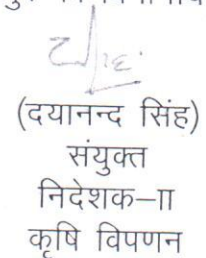 (दयानन्द सिंह)
संयुक्त
निदेशक–II
कृषि विपणन